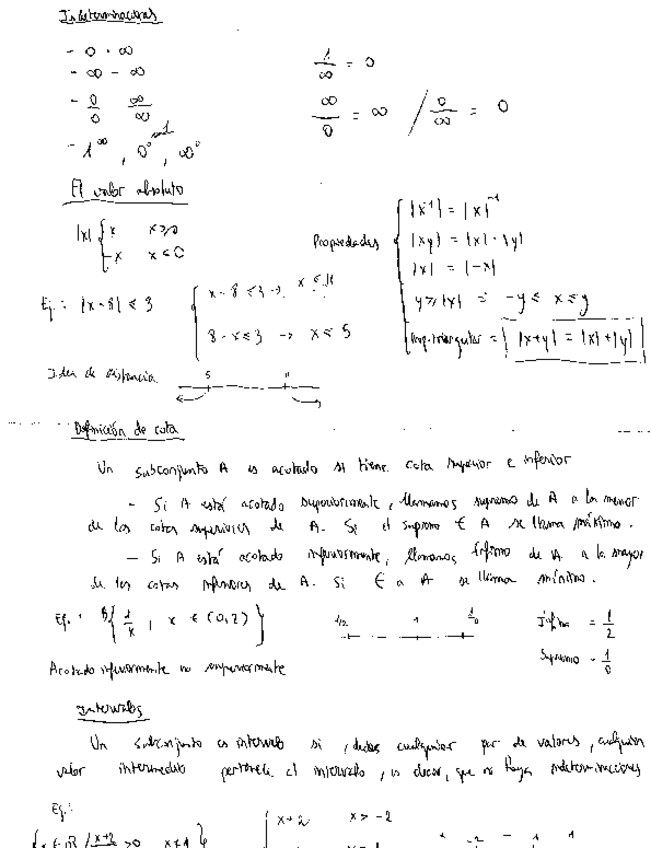 Indeterminaciones
- 0 · ∞
- ∞ - ∞
- 0/0  ∞/∞
- 1^∞, 0^0, ∞^0
1/∞ = 0
∞/0 = ∞ / 0/∞ = 0
El valor absoluto
|x| { x  x≥0
-x  x≤0
Propiedades
|x^-1| = |x|^-1
|xy| = |x|·|y|
|x| = |-x|
y ≥ |x| = -y ≤ x ≤ y
triangular = |x+y| = |x|+|y|
Ej.: |x-8| ≤ 3
x-8 ≤ 3 → x ≤ 11
8-x ≤ 3 → x ≤ 5
Idea de distancia  5  11
Definición de cota
Un subconjunto A es acotado si tiene cota superior e inferior
- Si A está acotado superiormente, llamamos supremo de A a la menor
de las cotas superiores de A. Si el supremo ∈ A se llama máximo.
- Si A está acotado inferiormente, llamamos ínfimo de A a la mayor
de las cotas inferiores de A. Si ∈ a A se llama mínimo.
Ej.: { 1/x, x ∈ (0,2) }  1/2  1  1/0
= 1/2
Supremo = 1/0
Acotado inferiormente no superiormente
Intervalos
Un subconjunto es intervalo si, dados cualquier par de valores, cualquier
valor intermedio pertenece al intervalo, es decir, que no haya indeterminaciones
Ej.:
{x ∈ ℝ / x+2 >0  x≠1}
x+2  x > -2